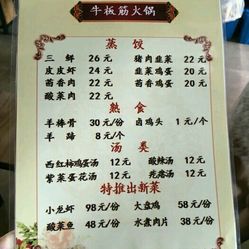 牛板筋火锅
蒸饺
三鲜 26元 猪肉韭菜 22元
皮皮虾 24元 韭菜鸡蛋 20元
茴香肉 22元 茴香鸡蛋 20元
酸菜肉 22元
熟食
羊棒骨 30元/份 卤鸡头 1元/个
羊蹄 8元/个
汤类
西红柿鸡蛋汤 12元 酸辣汤 12元
紫菜蛋花汤 12元 疙瘩汤 12元
特推出新菜
小龙虾 98元/份 大盘鸡 58元/份
酸菜鱼 48元/份 水煮肉片 38元/份